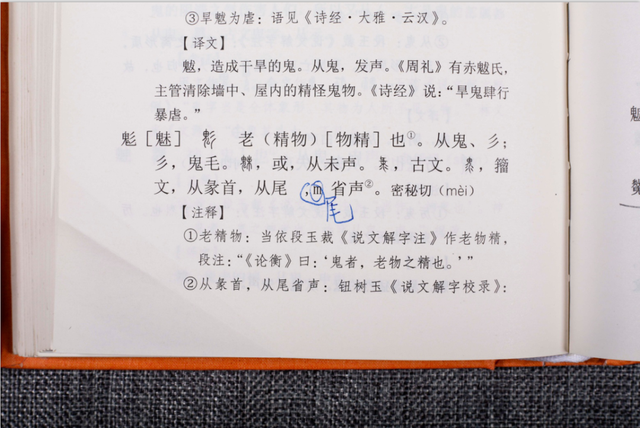 ③旱魃为虐：语见《诗经·大雅·云汉》。
【译文】
魃，造成干旱的鬼。从鬼，犮声。《周礼》有赤魃氏，
主管清除墙中、屋内的精怪鬼物。《诗经》说：“旱鬼肆行
暴虐。”
鬽［魅］ 老（精物）［物精］也①。从鬼、彡；
彡，鬼毛。魅，或，从未声。，古文。，籀
文，从彖首，从尾，m省声②。密秘切（mèi）
尾
【注释】
①老精物：当依段玉裁《说文解字注》作老物精，
段注：“《论衡》曰：‘鬼者，老物之精也。’”
②从彖首，从尾省声：钮树玉《说文解字校录》：